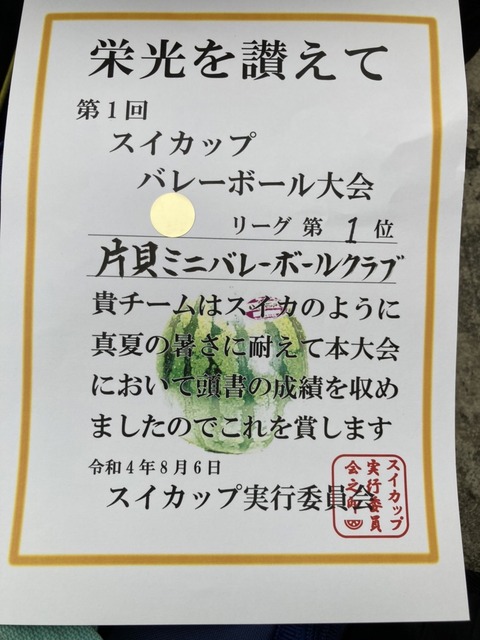 栄光を讃えて
第1回
スイカップ
バレーボール大会
リーグ 第 1 位
片貝ミニバレーボールクラブ
貴チームはスイカのように
真夏の暑さに耐えて本大会
において頭書の成績を収め
ましたのでこれを賞します
令和4年8月6日
スイカップ実行委員会
スイカップ
実行委員
会之印